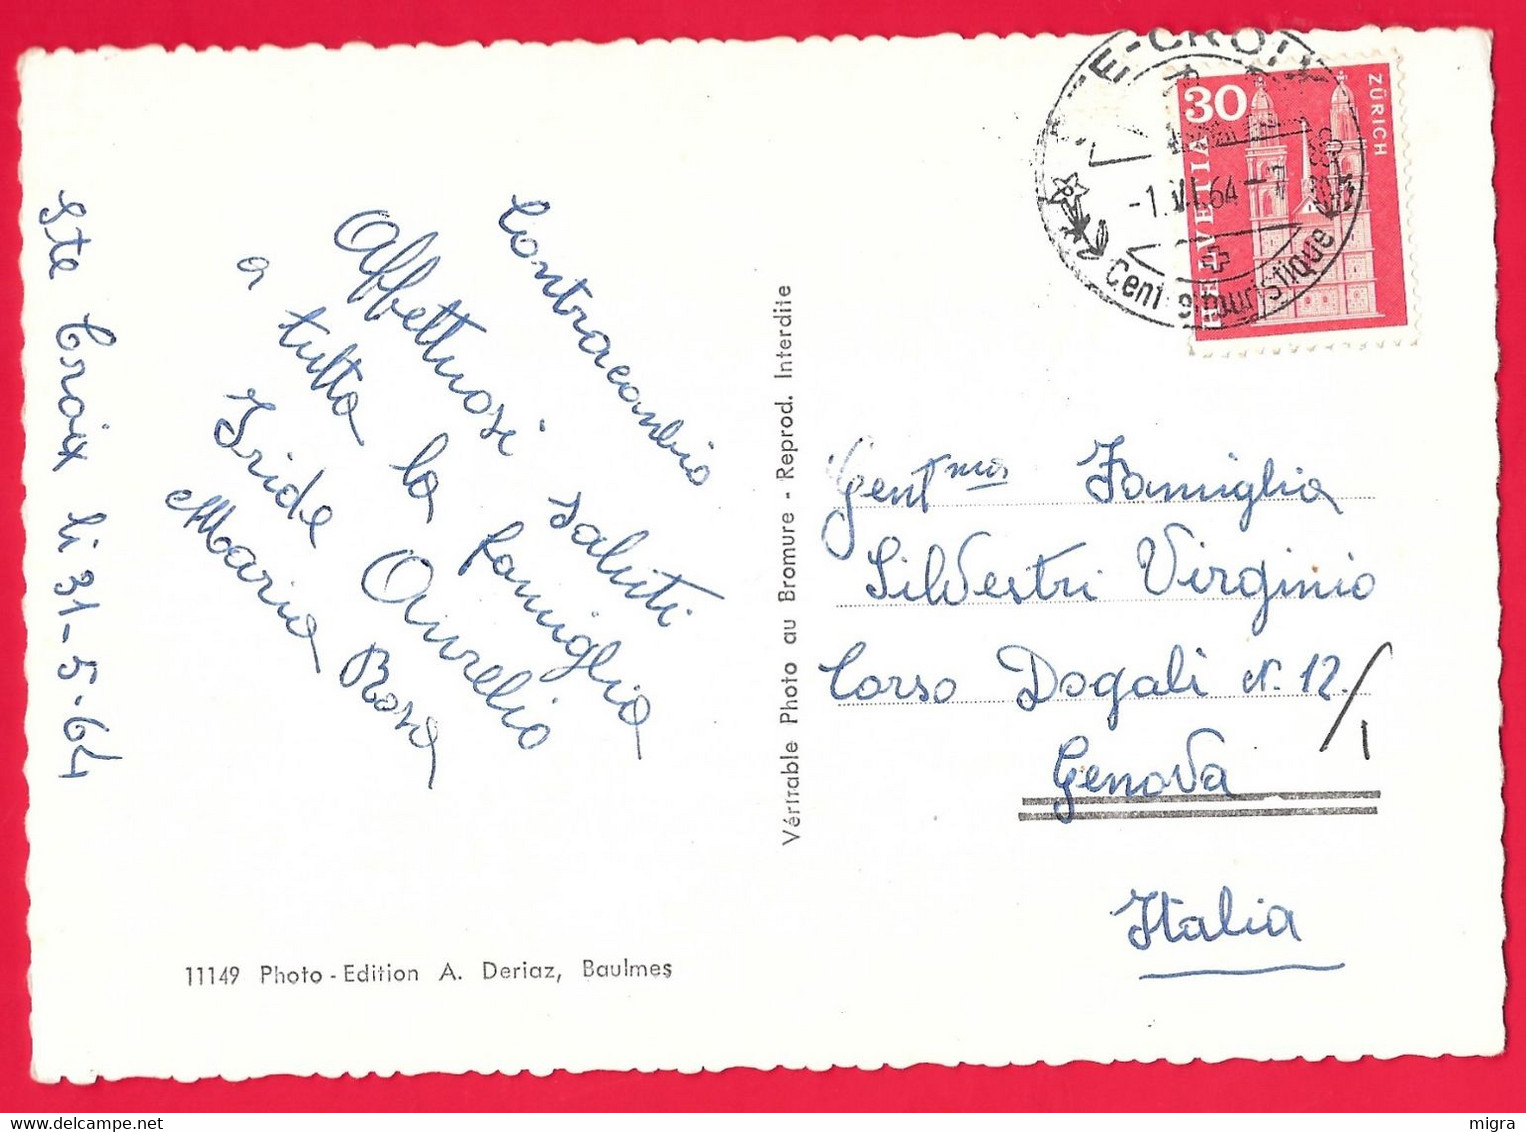 Ste Croix li 31-5-64
Contracambio
affettuosi saluti
a tutta la famiglia
Iride Aurelio
Maria Rosa
11149 Photo - Edition A. Deriaz, Baulmes
Véritable Photo au Bromure - Reprod. Interdite
E-CROIX
1066
-1.VI.64-7
Centre touristique
30
HELVETIA
ZÜRICH
Gent.mas Famiglia
Silvestri Virginio
Corso Dogali N. 12/1
Genova
Italia
migra